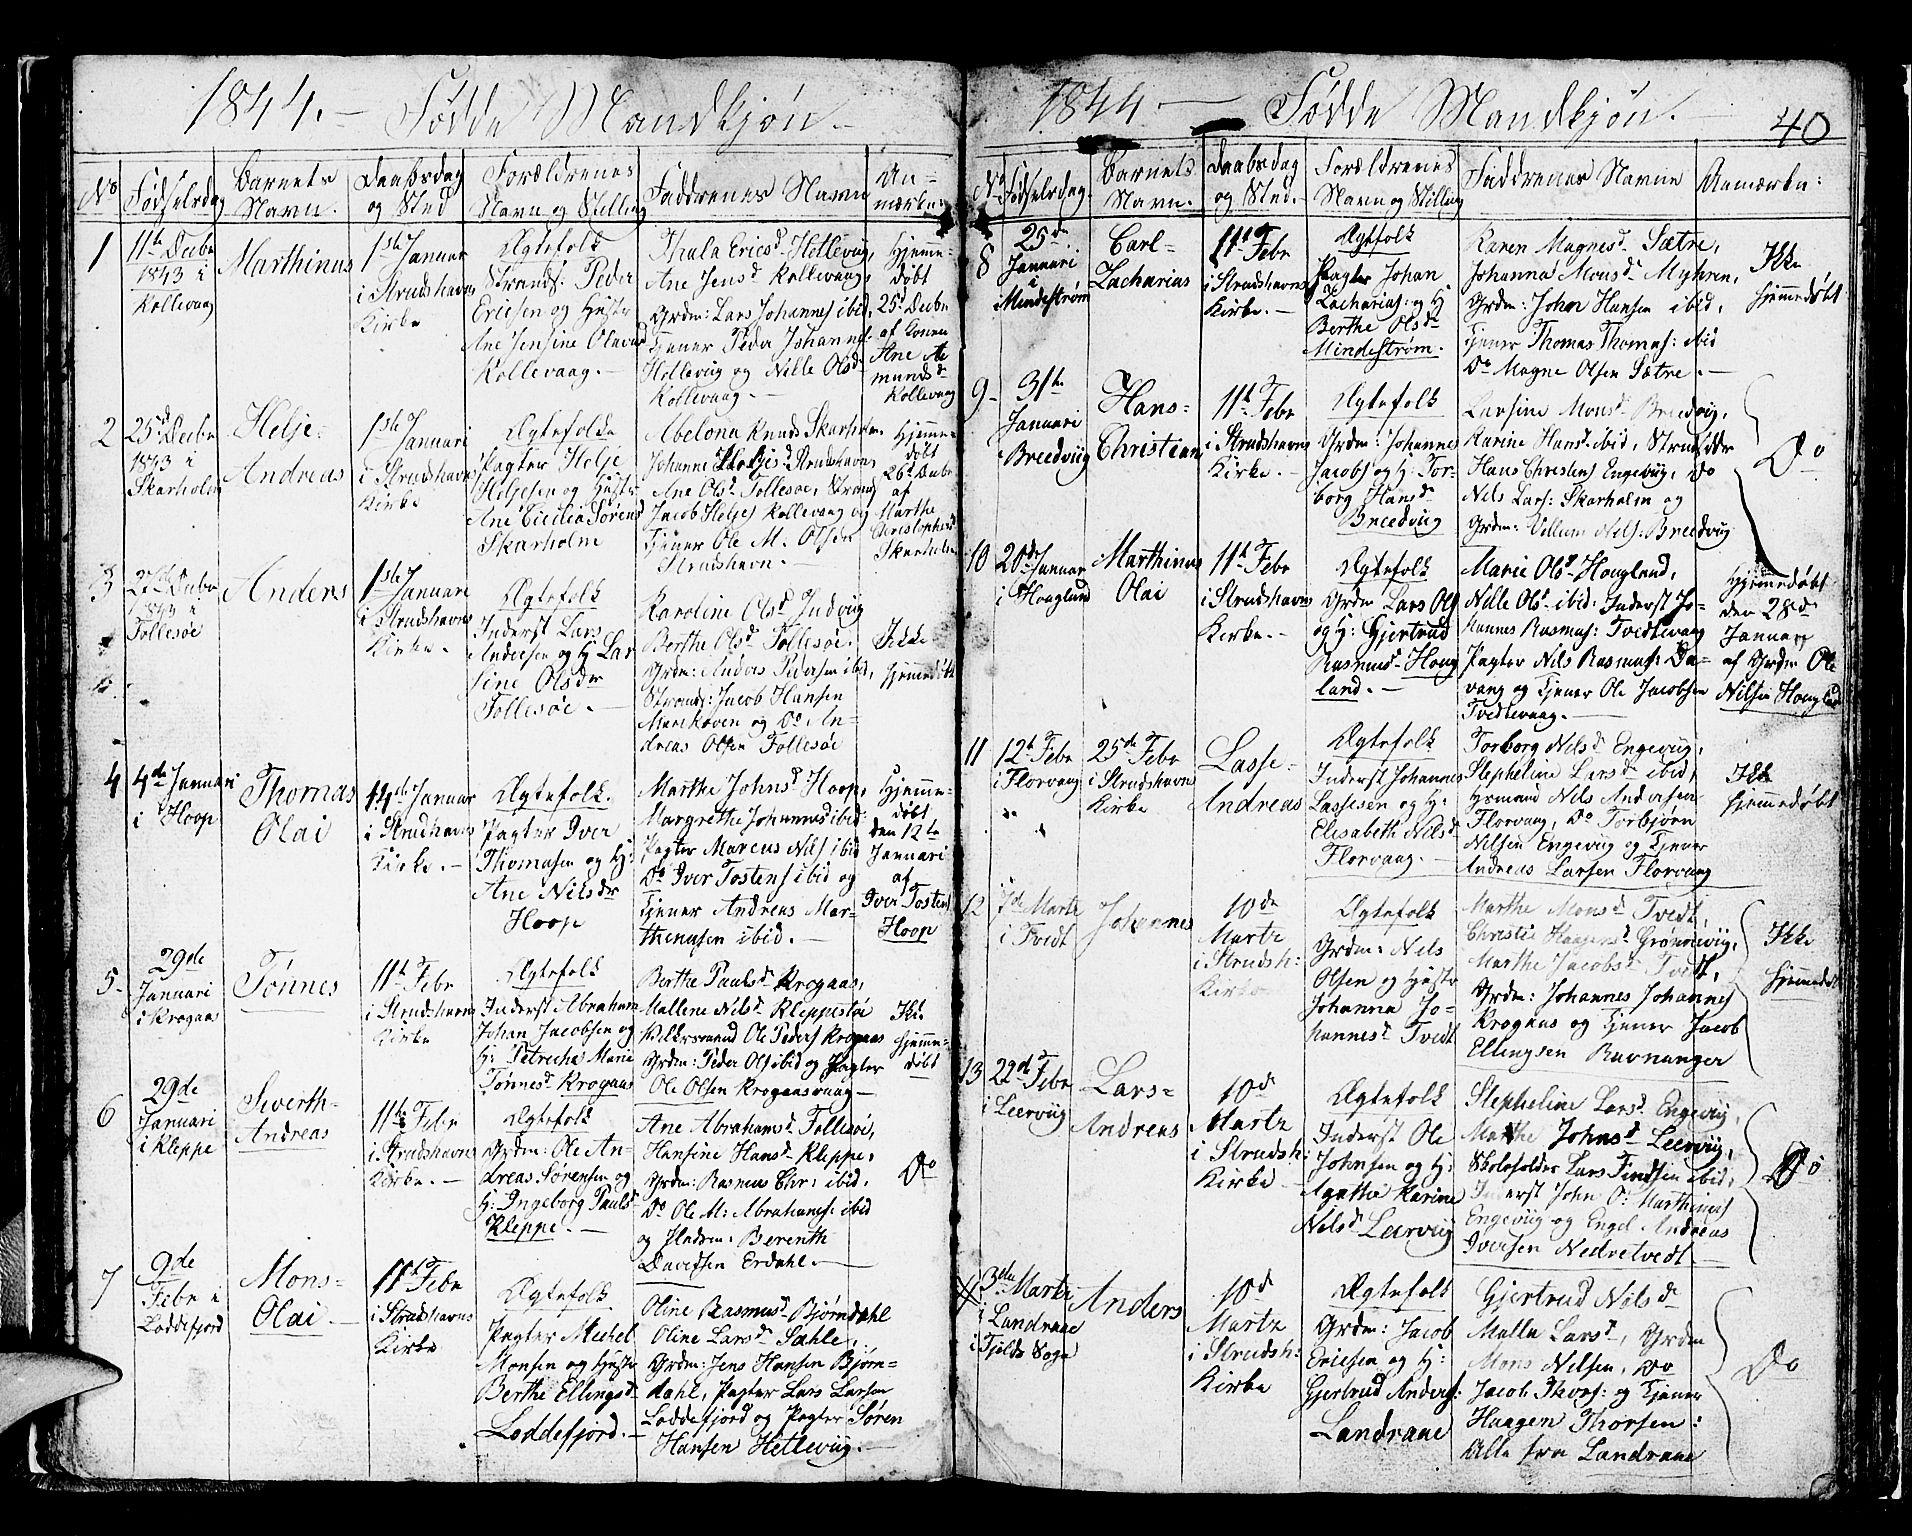 1844. — Fødde Mandkjøn. —
No
Fødselsdag
Barnets
Navn.
Daabsdag
og Sted
Forældrenes
Navn og Stilling
Faddrenes Navn
An-
mærkn.
1
11te Decbr
1843 i
Kollevaag
Marthinus
1ste Januar
i Strudshavns
Kirke
Ægtefolk
Strands. Peder
Ericsen og Hustr
Ane Jensine Olavesd
Kollevaag. —
Thala Ericsd Hetlevug,
Ane Jensd Kollevaag,
Grdm: Lars Johannes ibid,
Tjener Peder Johannes:
Hetleviig og Nille Olsd
Kollevaag. —
Hjemme-
døbt
25d Decbr
af Konen
Ane Aa
mundsd
Kollevaag
2
25d Decbr
1843 i
Skarholm
Helje-
Andreas
1ste Januari
i Strudshavns
Kirke
Ægtefolk
Pagter Helje
Heljesen og Hustr
Ane Cicilia Sørensd
Skarholm
Abelona Knuds Skarholm
Johanne Heljesd Strudshavn,
Ane Olsd Follesøe, Strands
Jacob Heljes Kollevaag og
Tjener Ole M. Olsen
Strudshavn. —
Hjemme-
døbt
26d Decbr
af
Marthe
Christophersd
Skarholm
3
27de Decbr
1843 i
Follesøe
Anders
1ste Januari
i Strudshavns
Kirke. —
Ægtefolk
Inderst Lars
Andersen og H. Lar
sine Olsdr
Follesøe. —
Karoline Olsd Indviig
Berthe Olsd Follesøe.
Grdm: Anders Pedersen ibid,
Strands: Jacob Hansen
Marikoven og Do An-
dreas Olsen Follesøe
Ikke
hjemmedøbt
4
4de Januari
i Hoop
Thomas
Olai
14de Januar
i Strudhavns
Kirke. —
Ægtefolk.
Pagter Iver
Thomasen og H:
Ane Nilsdr
Hoop
Marthe Johnsd Hoop,
Margrethe Johannesd ibid:
Pagter Marcus Nils ibid
Do Iver Tostens ibid og
Tjener Andreas Mar-
thenusen ibid. —
Hjemme-
døbt
den 12te
Januari
af
Iver Tostens
Hoop
5-
29de
Januari
i Krogaas
Tønnes
11te Febr
i Strudshavns
Kirke
Ægtefolk
Inderst Abraham
Johan Jacobsen og
H: Petriche Marie
Tønnesd Krogaas
Berthe Paulsd Krogaas,
Mallene Nilsd Kleppestøe
Ole Peders Krogaas
Grdm: Peder Ols ibid og Pagter
Ole Olsen Krogaasvaag —
Ikke
hjemme-
døbt
6
29de
Januari
i Kleppe
Siverth-
Andreas
11te Febr
i Strudshavns
Kirke. —
Ægtefolk
Grdm: Ole An-
dreas Sørensen og
H: Ingeborg Paulsd
Kleppe. —
Ane Abrahamsd Follesøe,
Hansine Hansd Kleppe,
Grdm: Rasmus Chr: ibid,
Do Ole M: Abrahams: ibid
og Berenth
Davidsen Erdahl. —
Do
7
9de
Febr i
Loddefjord
Mons-
Olai. —
11te Febr
i Strudshavns
Kirke
Ægtefolk
Pagter Michel
Monsen og Hustr
Berthe Ellingsd
Loddefjord. —
Oline Rasmusd Bjørndahl
Oline Larsd Sæhle,
Grdm: Jens Hansen Bjørn-
dahl, Pagter Lars Larsen
Loddefjord og Pagter Søren
Hansen Hetleviig. —
1844 — Fødde Mandkjøn. —
40
No
Fødselsdag
Barnets
Navn.
Daabsdag
og Sted.
Forældrenes
Navn og Stilling
Faddrenes Navne
Anmærkn:
8
25de
Januari
i
Mindestrøm
Carl-
Zacharias
11te Febr
i Strudshavns
Kirke.
Ægtefolk
Pagter Johan
Zacharias: og H
Berthe Olsdr
Mindestrøm.
Karen Magnesd Sætre,
Johanna Monsd Myhren,
Grdm: Johan Hansen ibid,
Tjener Thomas Thomas: ibid
Do Magne Olsen Sætre. —
Ikke
hjemmedøbt
9-
31te
Januari
Breedviig
Hans-
Christian
11te Febr
i Strudshavns
Kirke. —
Ægtefolk
Grdm: Johannes
Jacobs og H: Tor-
borg Hansdr
Breedviig
Larsine Monsd Breedviig,
Karine Hansd ibid, Strandsidder
Hans Christens Engeviig, Do
Nils Lars: Skarholm og
Grdm: Villum Nils: Breedviig
Do
10
20de Januar
i Hougland
Marthinus
Olai
11te Febr
i Strudshavns
Kirke. —
Ægtefolk
Grdm Lars Ols
og H: Gjertrud
Rasmusd Houg
land. —
Marie Olsd Hougland,
Nille Olsd ibid: Inderst Jo-
hannes Rasmus: Tvedtevaag
Pagter Nils Rasmus: Da-
vang og Tjener Ole Jacobsen
Tvedtevaag. —
Hjemmedøbt
den 28de
Januar
af Grdm Ole
Nilsen Hougland
11
12te Febr
i Florvaag
25de Febr
i Strudshavns
Kirke
Lasse-
Andreas
Ægtefolk
Inderst Johannes
Lassesen og H:
Elisabeth Nilsd
Florvaag. —
Torborg Nilsd Engeviig,
Stepheline Larsd ibid,
Huusmand Nils Andersen
Florvaag, Do Torbjørn
Nilsen Engeviig og Tjener
Andreas Larsen Florvaag
Ikke
hjemmedøbt
12
7de Marts
i Tvedt
Johannes
10de
Marts
i Strudsh:
Kirke
Ægtefolk
Grdm: Nils
Olsen og Hustr
Johanna Jo-
hannesd Tvedt
Marthe Monsd Tvedt,
Christie Haagensd Grønneviig,
Marthe Jacobsd Tvedt,
Grdm: Johannes Johannes
Krogaas og Tjener Jacob
Ellingsen Ravnanger
Ikke
hjemmedøbt
13
22d Febr
i Leerviig
Lars-
Andreas
10d
Marts
i Strudsh:
Kirke —
Ægtefolk
Inderst Ole
Johnsen og H:
Agathe Karine
Nilsd Leerviig
Stepheline Larsd Engeviig,
Marthe Johnsd Leerviig,
Skoleholder Lars Findsen ibid,
Inderst John O: Marthines
Engeviig og Engel Andreas
Iversen Nedretvedt —
Do
3die Marts
i Landraae
i Fjelds Sogn
Anders
10d
Marts
i Strudsh:
Kirke
Ægtefolk
Grdm: Jacob
Ericsen og H:
Gjertrud Anders:
Landraae
Gjertrud Nilsd
Malla Larsd, Grdm
Mons Nilsen, Do
Jacob Thors: og Tjener
Haagen Thorsen:
Alle fra Landraae
Do